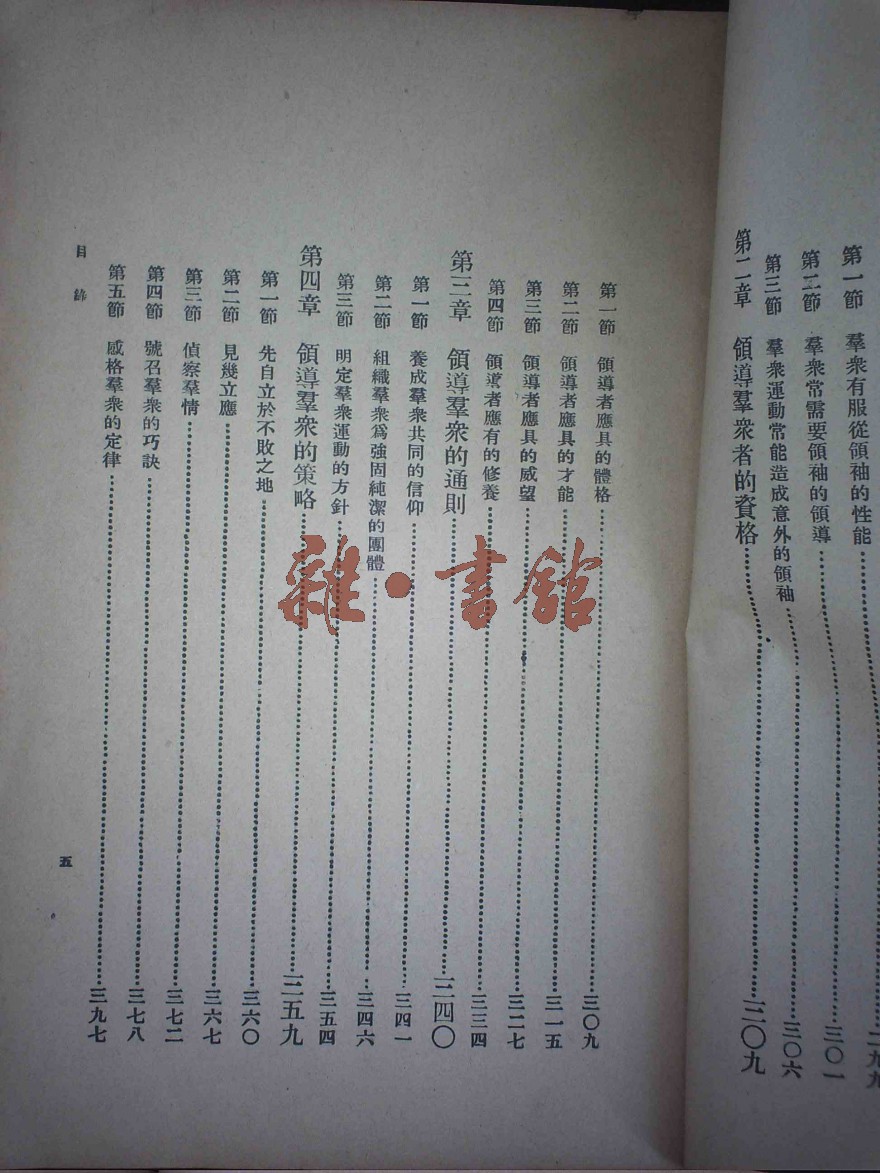 第一節　羣衆有服從領袖的性能……二九九
第二節　羣衆常需要領袖的領導……三〇一
第三節　羣衆運動常能造成意外的領袖……三〇六
第二章　領導羣衆者的資格……三〇九
第一節　領導者應具的體格……三〇九
第二節　領導者應具的才能……三一五
第三節　領導者應具的威望……三二七
第四節　領導者應有的修養……三三四
第三章　領導羣衆的通則……三四〇
第一節　養成羣衆共同的信仰……三四一
第二節　組織羣衆爲強固純潔的團體……三四六
第三節　明定羣衆運動的方針……三五四
第四章　領導羣衆的策略……三五九
第一節　先自立於不敗之地……三六〇
第二節　見幾立應……三六七
第三節　偵察羣情……三七二
第四節　號召羣衆的巧訣……三七八
第五節　感格羣衆的定律……三九七
目錄
五
雜·書館